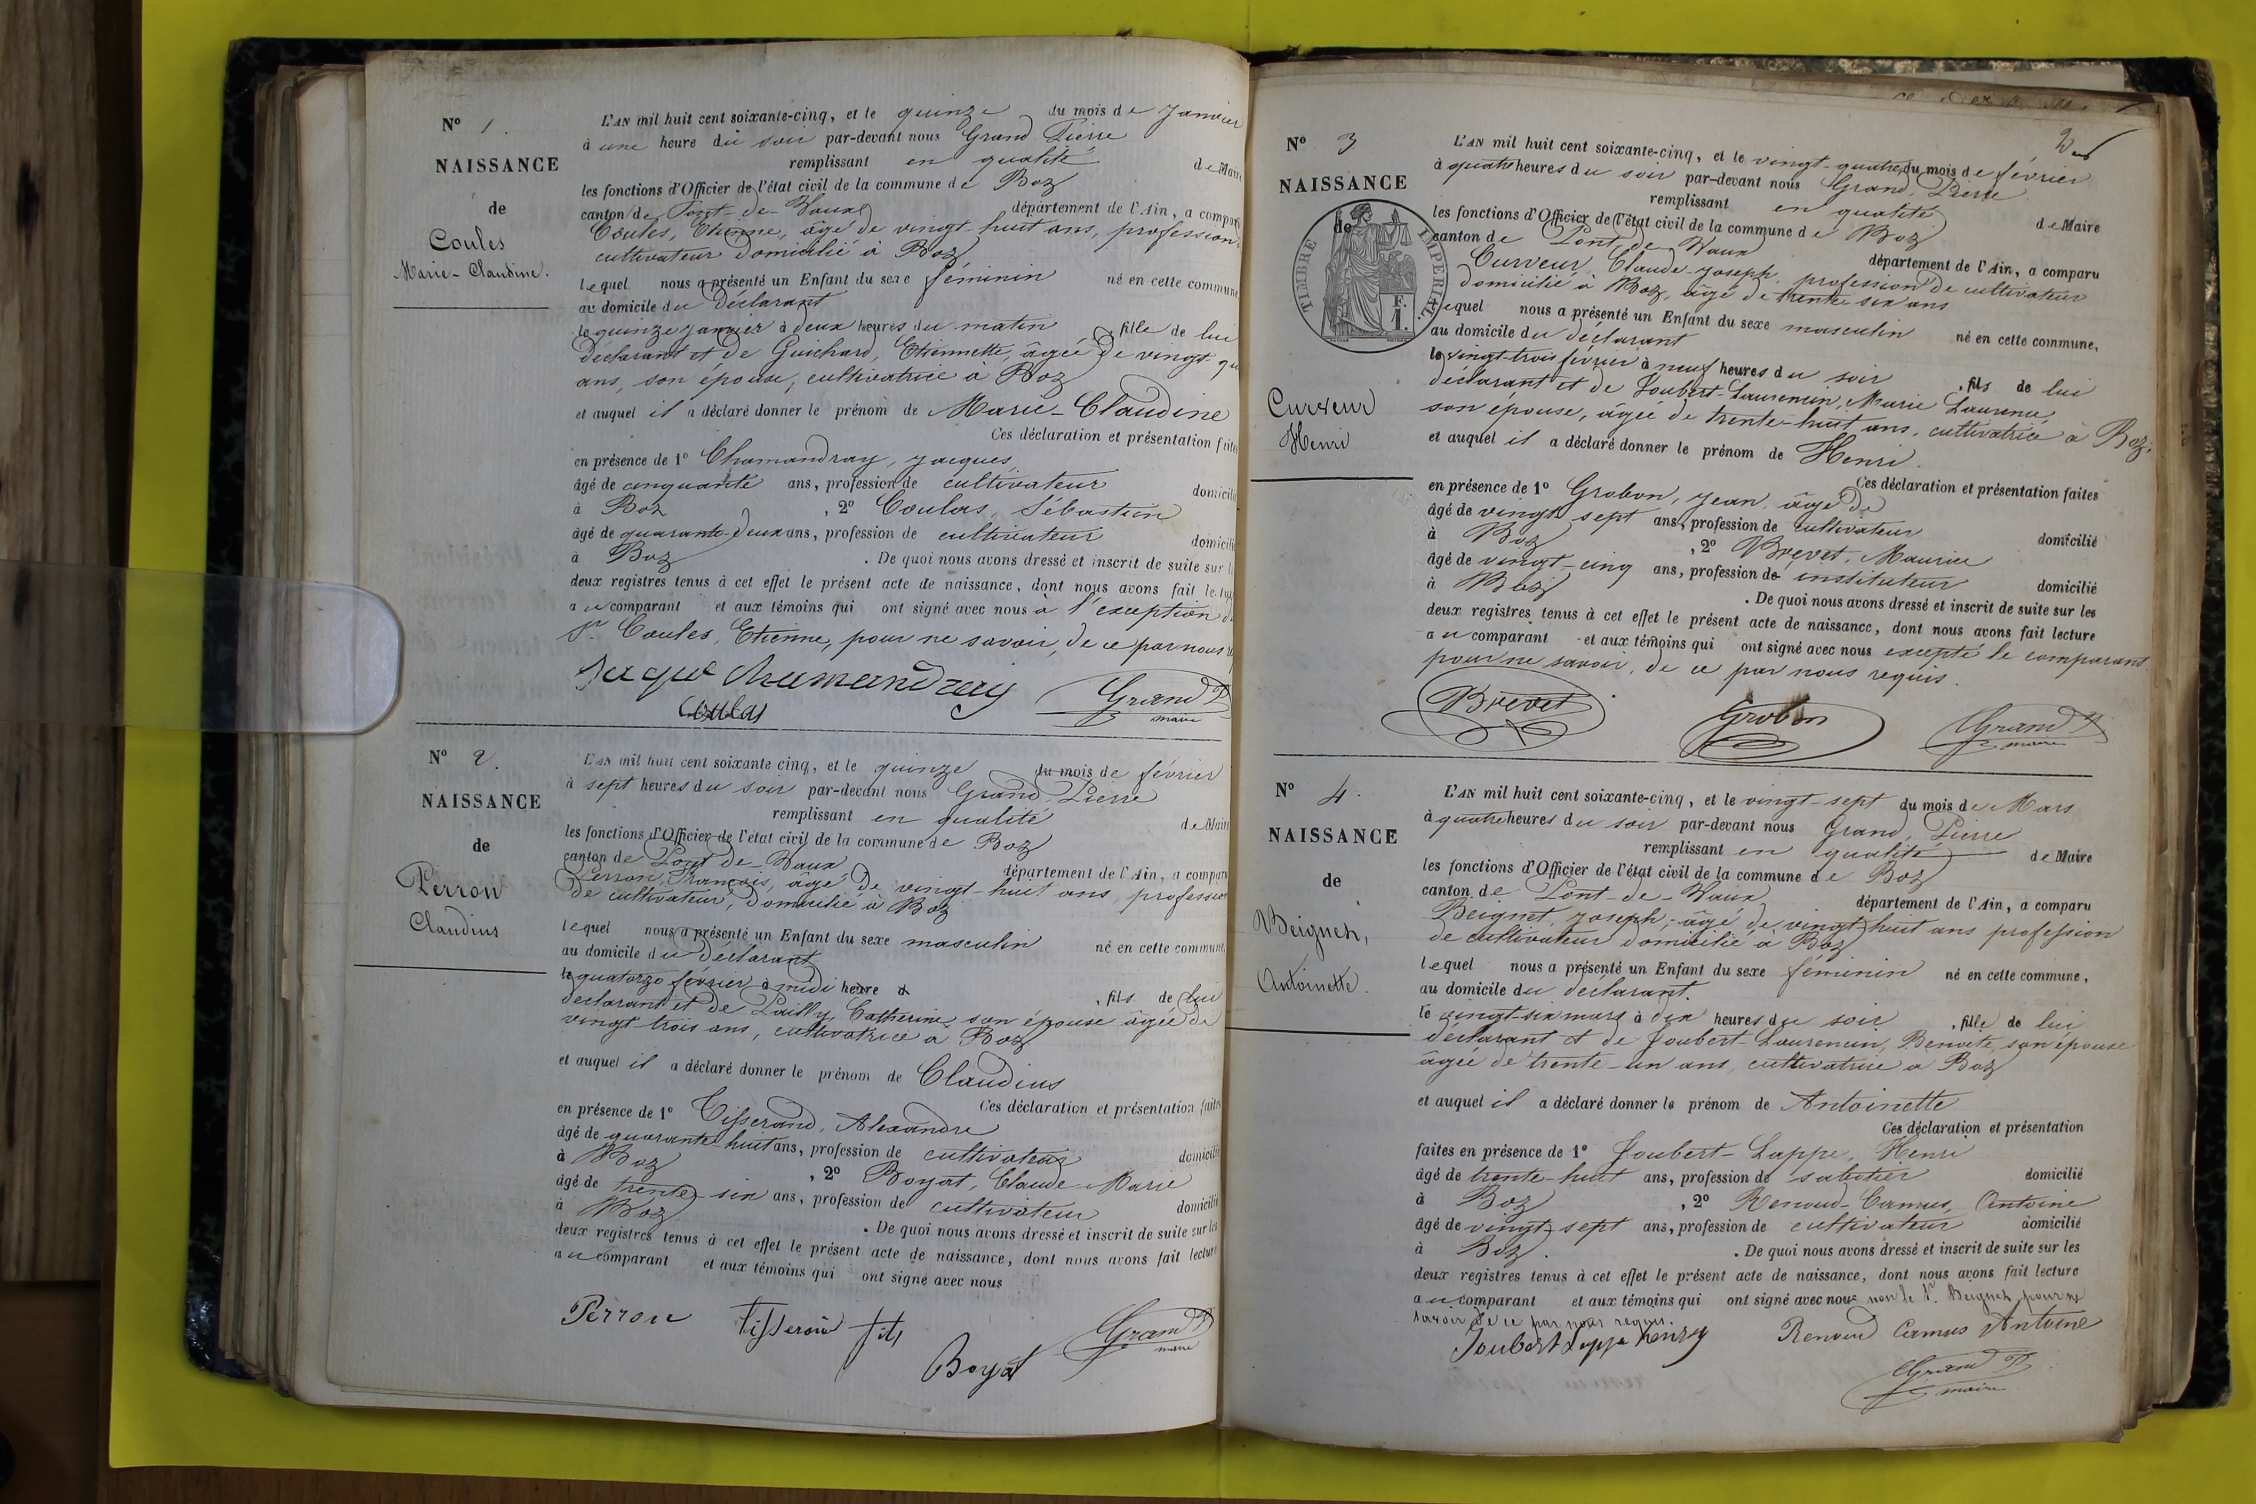 N° 1.
NAISSANCE
de
Coules
Marie-Claudine.
L'AN mil huit cent soixante-cinq, et le quinze du mois de Janvier
à une heure du soir par-devant nous Grand Pierre
remplissant en qualité de Maire
les fonctions d'Officier de l'état civil de la commune de Boz
canton de Pont-de-Vaux département de l'Ain, a comparu
Coules, Etienne, âgé de vingt-huit ans, profession
cultivateur domicilié à Boz
lequel nous a présenté un Enfant du sexe féminin né en cette commune
au domicile du déclarant
le quinze janvier à deux heures du matin, fille de lui
déclarant et de Guichard, Etiennette, âgée de vingt qu
ans, son épouse, cultivatrice à Boz
et auquel il a déclaré donner le prénom de Marie-Claudine
Ces déclaration et présentation faites
en présence de 1° Chamandray, Jacques
âgé de cinquante ans, profession de cultivateur domicilié
à Boz, 2° Coulas, Sébastien
âgé de quarante-deux ans, profession de cultivateur domicilié
à Boz. De quoi nous avons dressé et inscrit de suite sur l
deux registres tenus à cet effet le présent acte de naissance, dont nous avons fait lec
au comparant et aux témoins qui ont signé avec nous à l'exception d
Sr Coules, Etienne, pour ne savoir, de ce par nous r
Jaque Chamandray
Grand P
maire
Coulas
N° 2.
NAISSANCE
de
Perron
Claudius
L'AN mil huit cent soixante cinq, et le quinze du mois de février
à sept heures du soir par-devant nous Grand, Pierre
remplissant en qualité de Maire
les fonctions d'Officier de l'état civil de la commune de Boz
canton de Pont-de-Vaux département de l'Ain, a comparu
Perron, François, âgé de vingt-huit ans, profession
de cultivateur, domicilié à Boz
lequel nous a présenté un Enfant du sexe masculin né en cette commune,
au domicile du déclarant
le quatorze février à midi heure d, fils de lui
déclarant et de Pailly, Catherine, son épouse âgée de
vingt-trois ans, cultivatrice à Boz
et auquel il a déclaré donner le prénom de Claudius
Ces déclaration et présentation faites
en présence de 1° Tisserand, Alexandre
âgé de quarante-huit ans, profession de cultivateur domicilié
à Boz, 2° Boyat, Claude-Marie
âgé de trente-six ans, profession de cultivateur domicilié
à Boz. De quoi nous avons dressé et inscrit de suite sur les
deux registres tenus à cet effet le présent acte de naissance, dont nous avons fait lecture
au comparant et aux témoins qui ont signé avec nous
Perron Tisserand fils
Grand P
maire
Boyat
2
N° 3
NAISSANCE
de
TIMBRE IMPERIAL
F.
1.
Curveur
Henri
L'AN mil huit cent soixante-cinq, et le vingt-quatre du mois de février
à quatre heures du soir par-devant nous Grand, Pierre
remplissant en qualité de Maire
les fonctions d'Officier de l'état civil de la commune de Boz
canton de Pont de Vaux département de l'Ain, a comparu
Curveur, Claude-Joseph, profession de cultivateur
domicilié à Boz, âgé de trente six ans
lequel nous a présenté un Enfant du sexe masculin né en cette commune,
au domicile du déclarant
le vingt-trois février à neuf heures du soir, fils de lui
déclarant et de Joubert-Laurencin, Marie Laurence
son épouse, âgée de trente-huit ans, cultivatrice à Boz.
et auquel il a déclaré donner le prénom de Henri.
Ces déclaration et présentation faites
en présence de 1° Grobon, Jean, âgé de
âgé de vingt sept ans, profession de cultivateur domicilié
à Boz, 2° Brevet, Maurice
âgé de vingt-cinq ans, profession de instituteur domicilié
à Boz. De quoi nous avons dressé et inscrit de suite sur les
deux registres tenus à cet effet le présent acte de naissance, dont nous avons fait lecture
au comparant et aux témoins qui ont signé avec nous excepté le comparant
pour ne savoir, de ce par nous requis.
Brevet Grobon Grand P
maire
N° 4.
NAISSANCE
de
Beignet,
Antoinette.
L'AN mil huit cent soixante-cinq, et le vingt-sept du mois de Mars
à quatre heures du soir par-devant nous Grand, Pierre
remplissant en qualité de Maire
les fonctions d'Officier de l'état civil de la commune de Boz
canton de Pont-de-Vaux département de l'Ain, a comparu
Beignet, Joseph, âgé de vingt-huit ans profession
de cultivateur domicilié à Boz
lequel nous a présenté un Enfant du sexe féminin né en cette commune,
au domicile du déclarant.
le vingt-six mars à dix heures du soir, fille de lui
déclarant et de Joubert-Laurencin, Benoite, son épouse
âgée de trente-un ans, cultivatrice à Boz
et auquel il a déclaré donner le prénom de Antoinette
Ces déclaration et présentation
faites en présence de 1° Joubert-Lappe, Henri
âgé de trente-huit ans, profession de sabotier domicilié
à Boz, 2° Renoud-Camus, Antoine
âgé de vingt-sept ans, profession de cultivateur domicilié
à Boz. De quoi nous avons dressé et inscrit de suite sur les
deux registres tenus à cet effet le présent acte de naissance, dont nous avons fait lecture
au comparant et aux témoins qui ont signé avec nous non le Sr. Beignet, pour ne
savoir de ce par nous requis.
Joubert Lappe henry Renoud Camus Antoine
Grand P
maire